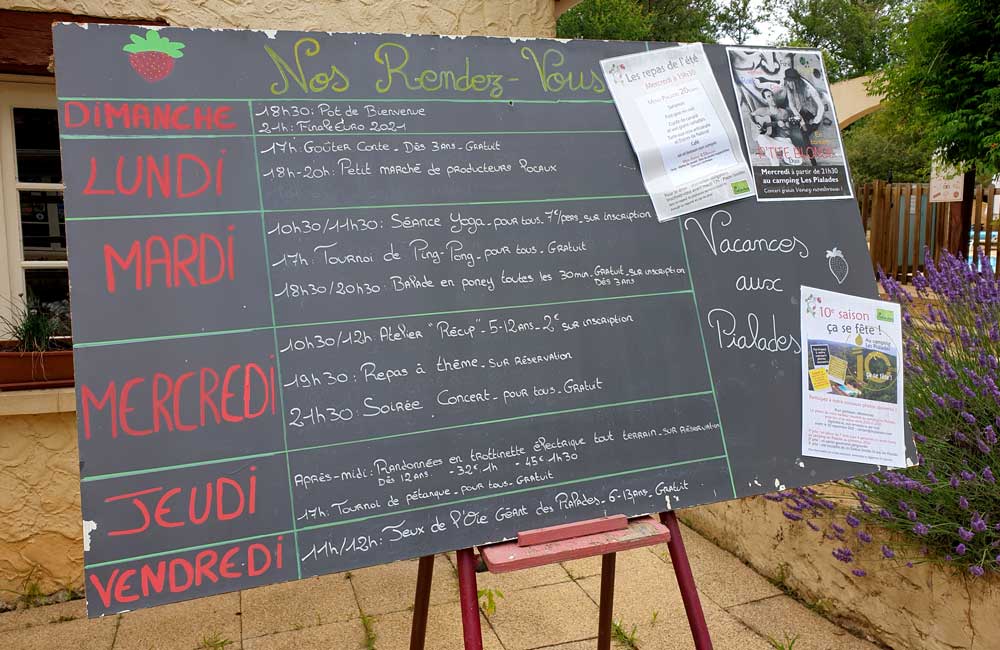 Nos Rendez-Vous
DIMANCHE
18h30: Pot de Bienvenue
21h: Finale Euro 2021
LUNDI
17h: Goûter Conte - Dès 3ans - Gratuit
18h-20h: Petit marché de producteurs locaux
MARDI
10h30/11h30: Séance Yoga - pour tous - 7€/pers sur inscription
17h: Tournoi de Ping-Pong - pour tous - Gratuit
18h30/20h30: Balade en poney toutes les 30min - Gratuit - sur inscription
Dès 3 ans
MERCREDI
10h30/12h: Atelier "Récup" - 5-12ans - 2€ sur inscription
19h30: Repas à thème - sur réservation
21h30: Soirée Concert - pour tous - Gratuit
JEUDI
Après-midi: Randonnées en trottinette électrique tout terrain - sur réservation
Dès 12 ans. - 32€ 1h - 45€ 1h30
17h: Tournoi de pétanque - pour tous - Gratuit
VENDREDI
11h/12h: Jeux de l'Oie Géant des Pialades - 6-13ans - Gratuit
Vacances
aux
Pialades
Les repas de l'été
Mercredi à 19h30
Café
Mercredi à partir de 21h30
au camping Les Pialades
10e saison
ça se fête !
Au camping
Les Pialades
10